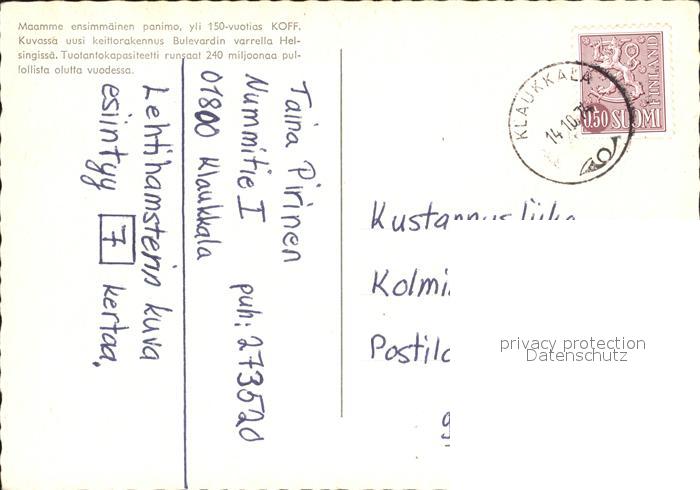 Maamme ensimmäinen panimo, yli 150-vuotias KOFF.
Kuvassa uusi keittorakennus Bulevardin varrella Hel-
singissä. Tuotantokapasiteetti runsaat 240 miljoonaa pul-
lollista olutta vuodessa.
Taina Pirinen
Nummitie I
puh: 273520
01800 Klaukkala
Lehtihamsterin kuva
esiintyy 7 kertaa.
KLAUKKALA
14.10.
0,50 SUOMI
FINLAND
Kustannusliike
Kolmi
Postilo
privacy protection
Datenschutz